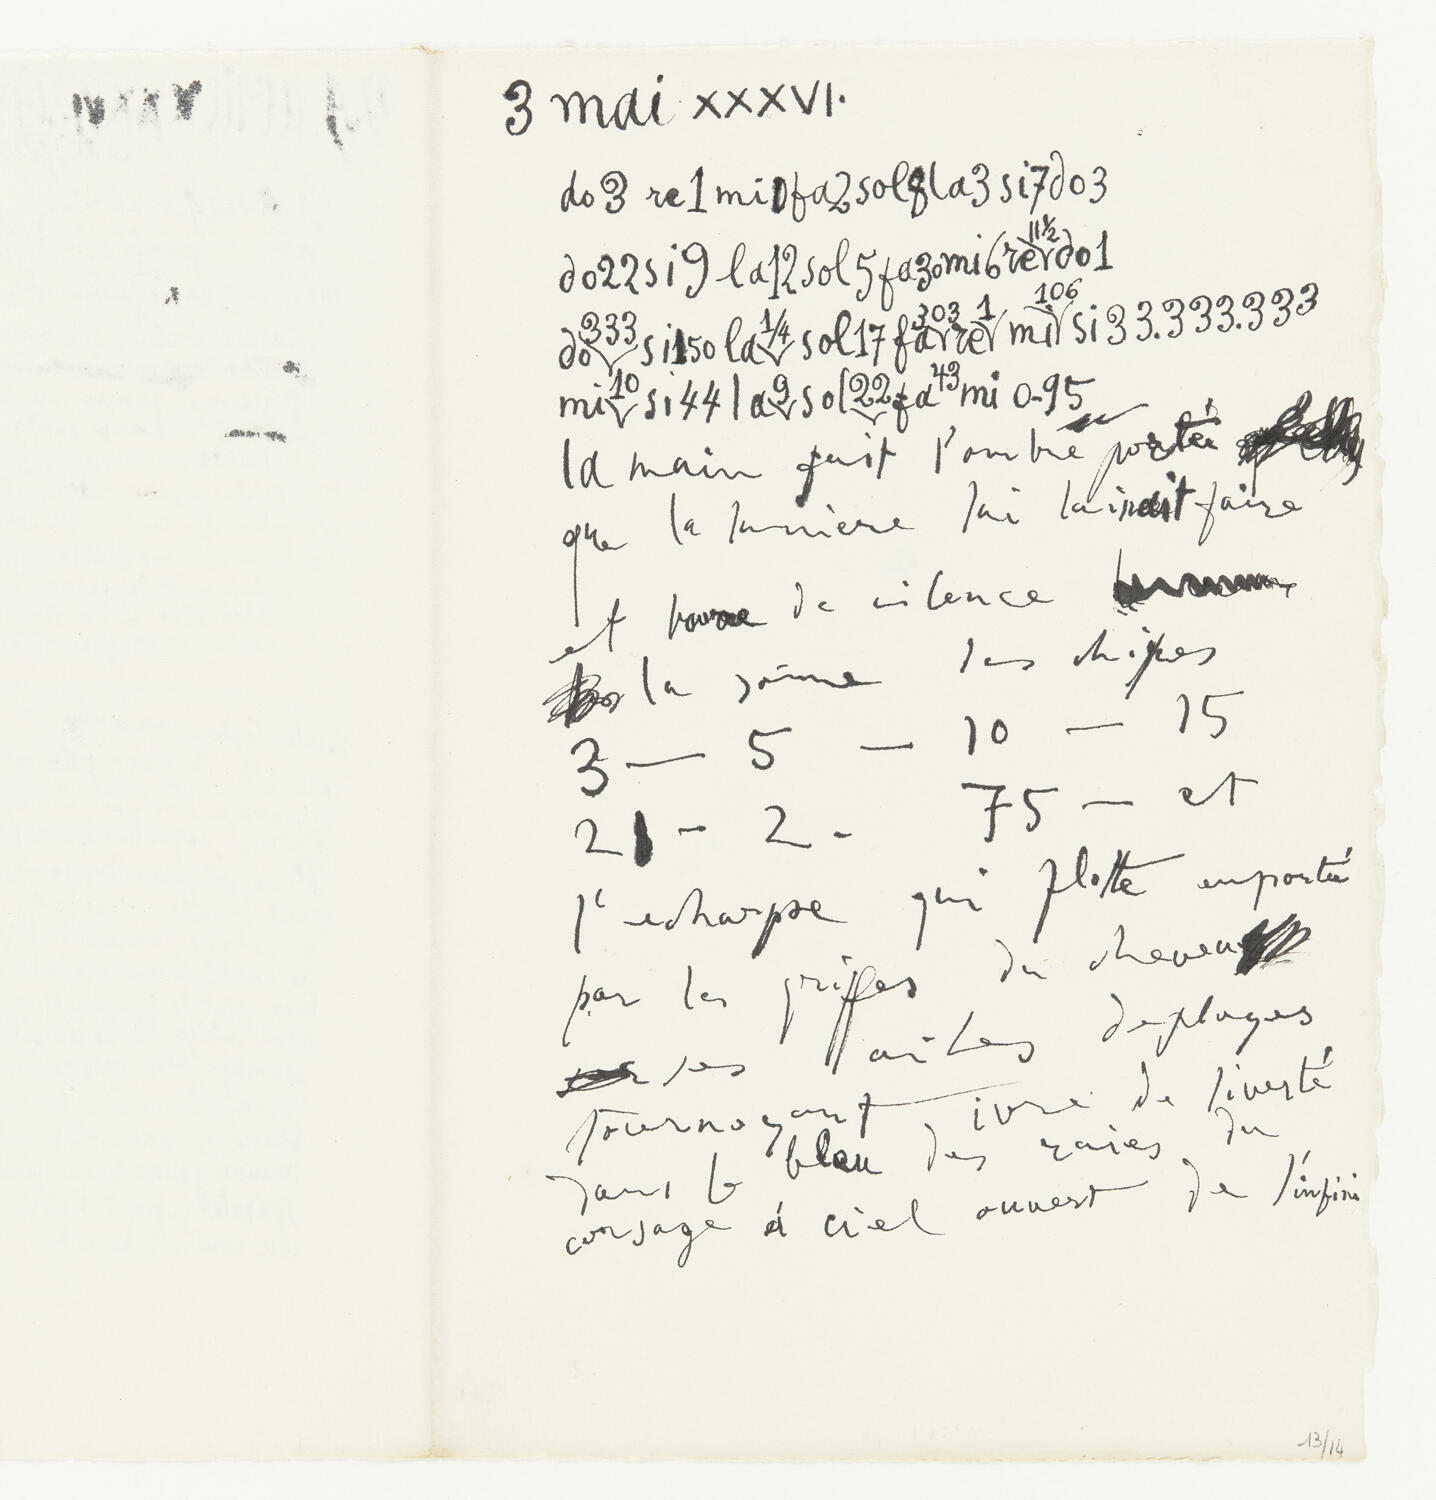 3 mai XXXVI.
do 3 re 1 mi 0 fa 2 sol 8 la 3 si 7 do 3
do 22 si 9 la 12 sol 5 fa 30 mi 6 re 11½ do 1
do 333 si 150 la ¼ sol 17 fa 303 re 1 mi 106 si 33.333.333
mi 10 si 44 la 9 sol 22 fa 43 mi 0-95
la main fait l'ombre porté
que la lumière lui fait faire
et de silence
la somme des chifres
3 — 5 — 10 — 15
21 - 2 - 75 — et
l'echarpe qui flotte emporté
par les griffes du cheveu
ses ailes deployes
tournoyant ivre de liverté
dans le bleu des raies du
corsage á ciel ouvert de l'infini
13/14